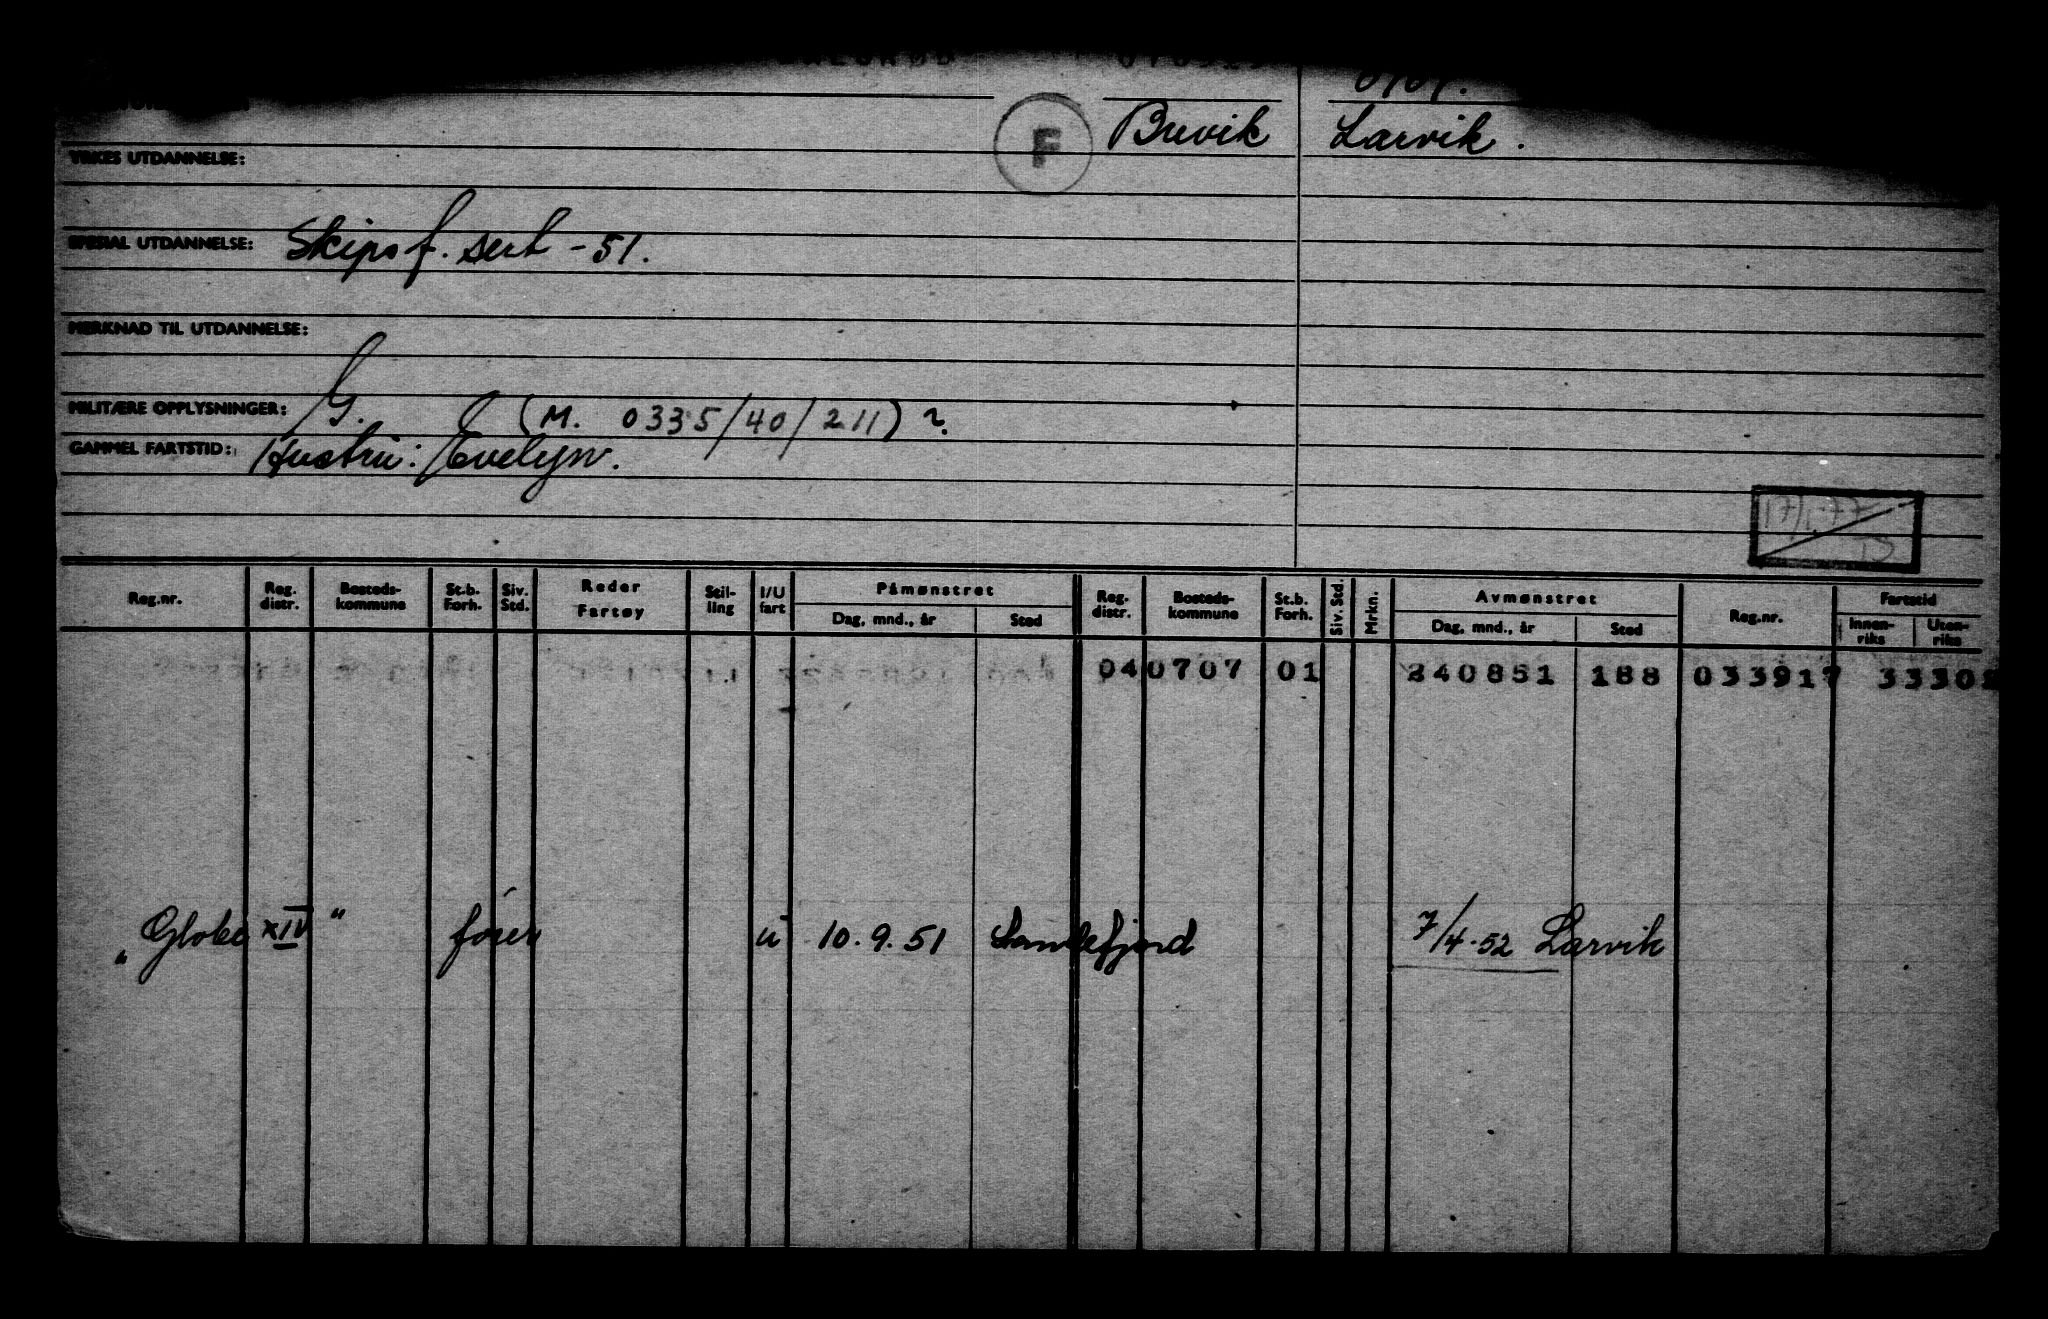 F Brevik Larvik.
YRKES UTDANNELSE:
SPESIAL UTDANNELSE: Skipsf. sert - 51.
MERKNAD TIL UTDANNELSE:
MILITÆRE OPPLYSNINGER: G. (M. 0335/40/211) ?
GAMMEL FARTSTID: Hustru: Evelyn.
17/1-77
Reg.nr. Reg. distr. Bosteds-kommune St.b. Forh. Siv. Std. Reder Fartøy Stil-ling I/U fart Påmønstret Dag, mnd., år Sted Reg. distr. Bosteds-kommune St.b. Forh. Siv. Std. Mrkn. Avmønstret Dag, mnd., år Sted Reg.nr. Fartstid Innen-riks Uten-riks
040707 01 240851 188 033917 3330
"Globe XIV" fører u 10.9.51 Sandefjord 7/4-52 Larvik